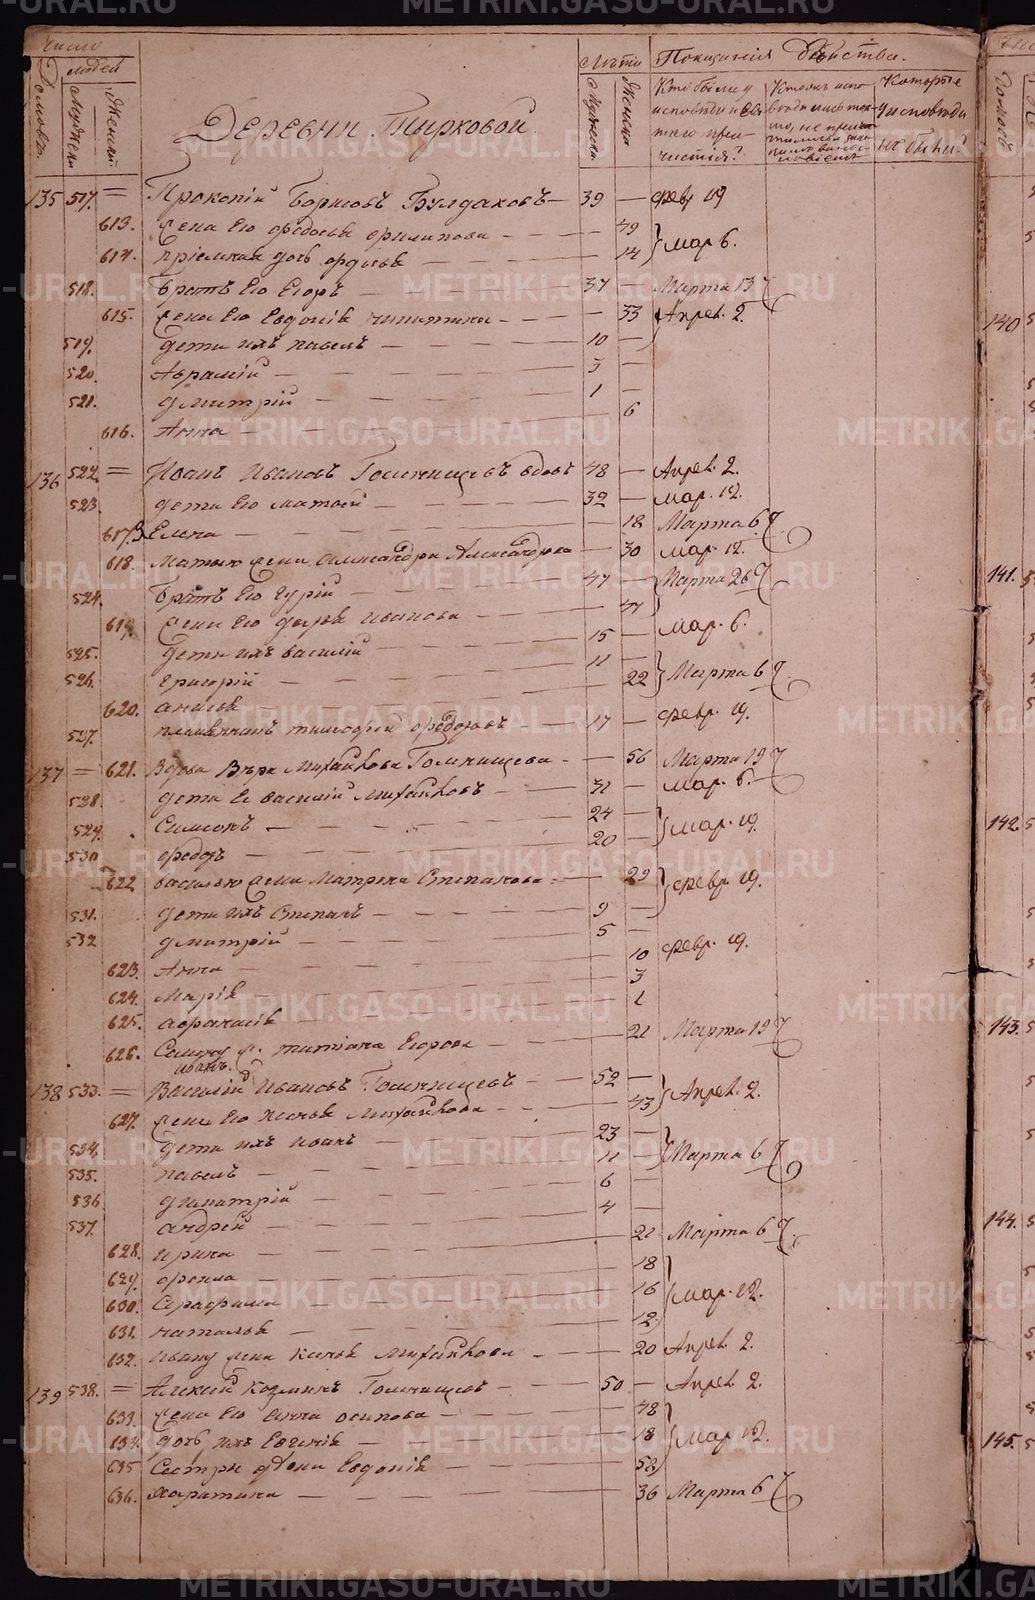 Число
людей
Домовъ.
Мужеска
Женска
Деревни Тырковой
Лѣта
Мужеска
Женска
Показанія Бытства.
Кто были у исповѣди и Свя таго при частія?
Которые у исповѣди не были?
135 517. = Прокопій Борисовъ Булдаковъ — 39 — фев. 19
613. жена Его Федосья Филипова — 49 } мар. 6.
614. пріемная дочь — 14
518. Братъ Его Егоръ — 37 — Марта 13
615. жена Его Евдокія Никитина — 33 Апрел. 2.
519. дети ихъ павелъ — 10 —
520. Аврамій — 3 —
521. дмитрій — 1 —
616. Анна — 6
136 522. = Иванъ Ивановъ Голенищевъ вдовъ 48 — Апрел. 2.
523. дети Его матвей — 32 — мар. 12.
617. Елена — 18 Марта 6
618. матвею жена Александра Александрова — 30 мар. 12.
524. Братъ Его Гурій — 47 — Марта 26
619. жена Его дарья Иванова — 44 мар. 6.
525. дети ихъ василій — 15 —
526. григорій — 11 — } Марта 6
620. 22
527. племянникъ — 17 — февр. 19.
137 = 621. Вдова Вѣра Михайлова Голенищева — 56 Марта 19
528. дети Ее василій Михайловъ — 31 — мар. 6.
529. Самсонъ — 24 — } мар. 19.
530 федоръ — 20 —
622 василью жена Матрена Степанова — 29 } февр. 19.
531. дети ихъ Степанъ — 9 —
532 дмитрій — 5 —
623. Анна — 10 февр. 19.
624. Марія — 3
625. афанасія — 1
626. Самсону ж. татіана Егорова — 21 Марта 19
138 533. = Василій Ивановъ Голенищевъ — 52 — } Апрел. 2.
627. жена Его Михайлова — 43
534. дети ихъ иванъ — 23 — } Марта 6
535. павелъ — 11 —
536 димитрій — 6 —
537. андрей — 4 —
628. ирина — 21 Марта 6
629. — 18 } мар. 12.
630. Серафима — 16
631. наталья — 12
632. ивану жена Михайлова — 20 Апрел. 2.
139 538. = Алексей Козминъ Голенищевъ — 50 — Апрел. 2.
633. жена Его Анна осипова — 48 } мар. 12.
634. дочь ихъ Евгенія — 18
635 Сестры Евдокія — 52
636. Харитина — 36 Марта 6
140
141.
142.
143.
144.
145.
METRIKI.GASO-URAL.RU